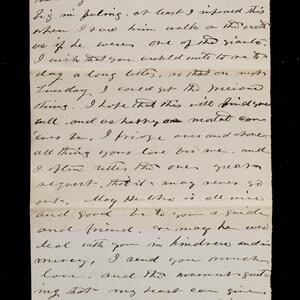 big in feeling. at least I infered this
when I saw him walk on the earth
as if he were one of the giants.
I wish that you would write to me to
day a long letter, so that on next
Tuesday I could get the precious
thing. I hope that this will find you
well and as happy as mortal can
ever be. I prize over and above
all thing your love for me. and
I often utter the one great
request, that it may never go
out. May He who is all wise
and good be to you a guide
and friend, or may he ever
deal with you in kindness and in
mercy, I send you much
love. and the warmest greet
ing that my heart can give.